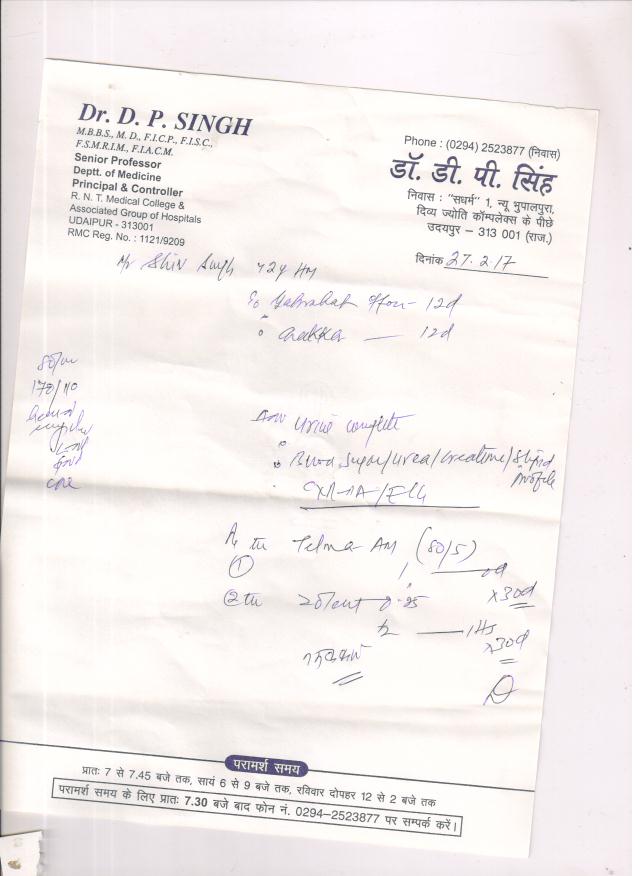 Dr. D. P. SINGH
M.B.B.S., M. D., F.I.C.P., F.I.S.C.,
F.S.M.R.I.M., F.I.A.C.M.
Senior Professor
Deptt. of Medicine
Principal & Controller
R. N. T. Medical College &
Associated Group of Hospitals
UDAIPUR - 313001
RMC Reg. No. : 1121/9209
Phone : (0294) 2523877 (निवास)
डॉ. डी. पी. सिंह
निवास : "सधर्म" 1, न्यू भुपालपुरा,
दिव्य ज्योति कॉम्पलेक्स के पीछे
उदयपुर – 313 001 (राज.)
दिनांक 27.2.17
Mr Shiv Singh
12d
12d
170/110
Urine complete
Blood Sugar/Urea/Creatinine/Lipid
Profile
CXR-PA/ECG
Telma AM (80/5)
①
x30d
②
0.25
½ 1HS
x30d
परामर्श समय
प्रातः 7 से 7.45 बजे तक, सायं 6 से 9 बजे तक, रविवार दोपहर 12 से 2 बजे तक
परामर्श समय के लिए प्रातः 7.30 बजे बाद फोन नं. 0294–2523877 पर सम्पर्क करें।